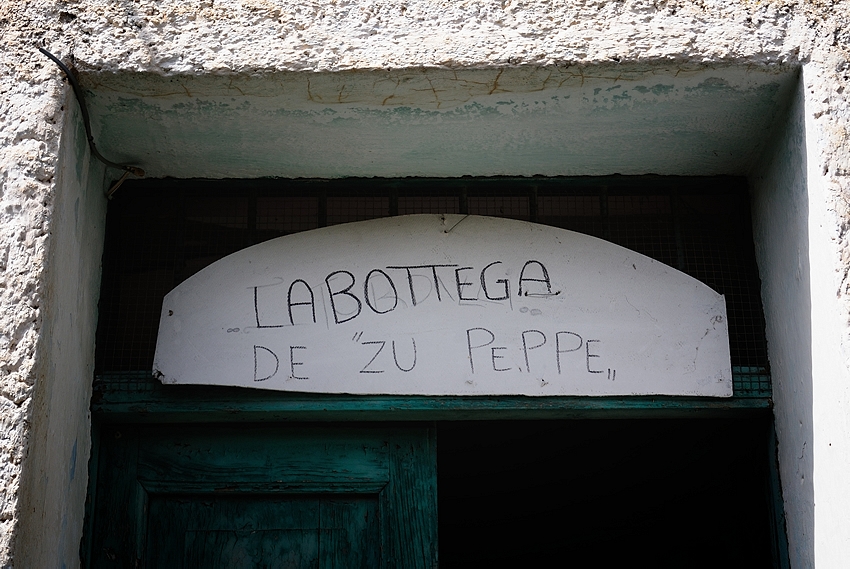 LABOTTEGA
DE "ZU PEPPE„